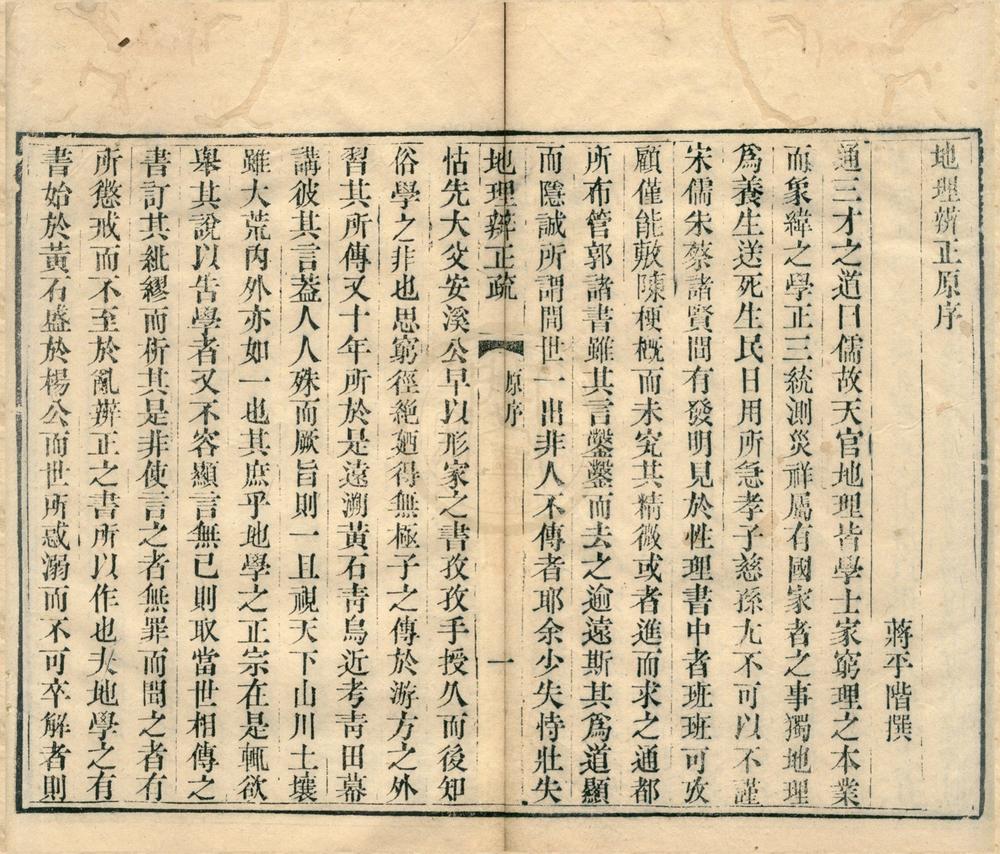 地理辨正原序
蔣平階撰
通三才之道曰儒故天官地理皆學士家窮理之本業
而象緯之學正三統測災祥屬有國家者之事獨地理
爲養生送死生民日用所急孝子慈孫尤不可以不謹
宋儒朱蔡諸賢間有發明見於性理書中者班班可攷
顧僅能敷陳梗概而未究其精微或者進而求之通都
所布管郭諸書雖其言鑿鑿而去之逾遠斯其爲道顯
而隱誠所謂間世一出非人不傳者耶余少失恃壯失
地理辨正疏 原序 一
怙先大父安溪公早以形家之書孜孜手授久而後知
俗學之非也思窮徑絶廼得無極子之傳於游方之外
習其所傳又十年所於是遠溯黃石靑烏近考靑田幕
講彼其言葢人人殊而厥旨則一且視天下山川土壤
雖大荒內外亦如一也其庶乎地學之正宗在是輒欲
舉其說以告學者又不容顯言無已則取當世相傳之
書訂其紕繆而析其是非使言之者無罪而聞之者有
所懲戒而不至於亂辨正之書所以作也夫地學之有
書始於黃石盛於楊公而世所惑溺而不可卒解者則